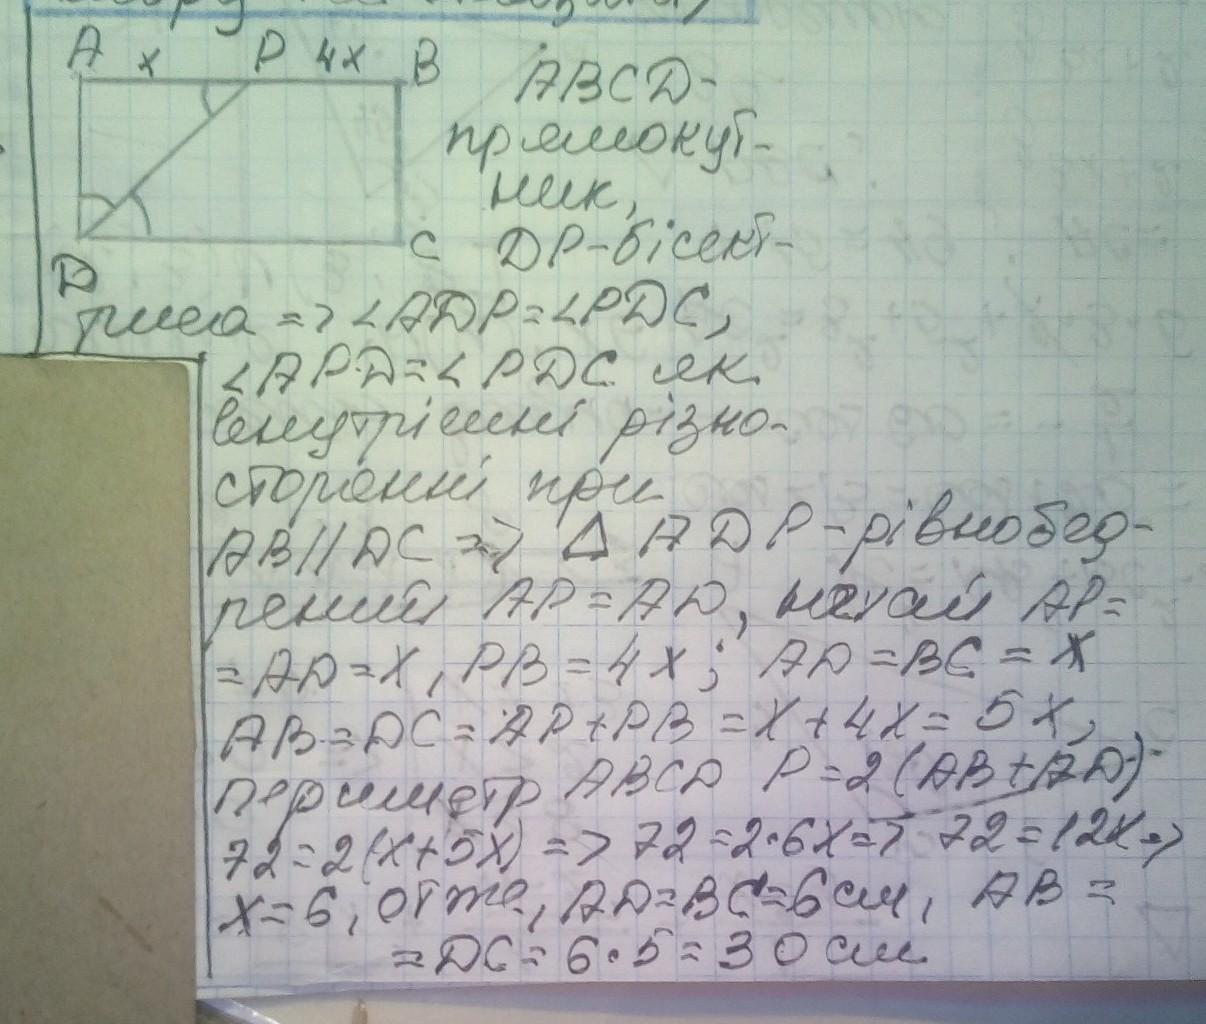 A x P 4x B
ABCD-
прямокут-
ник,
C DP-бісект-
D
риса => ∠ADP=∠PDC,
∠APD=∠PDC як
внутрішні різно-
сторонні при
AB//DC => Δ ADP-рівнобед-
рений AP=AD, нехай AP=
=AD=x, PB=4x; AD=BC=x
AB=DC=AP+PB=x+4x=5x,
периметр ABCD P=2(AB+AD)
72=2(x+5x) => 72=2·6x=> 72=12x=>
x=6, отже, AD=BC=6 см, AB=
=DC=6·5=30 см